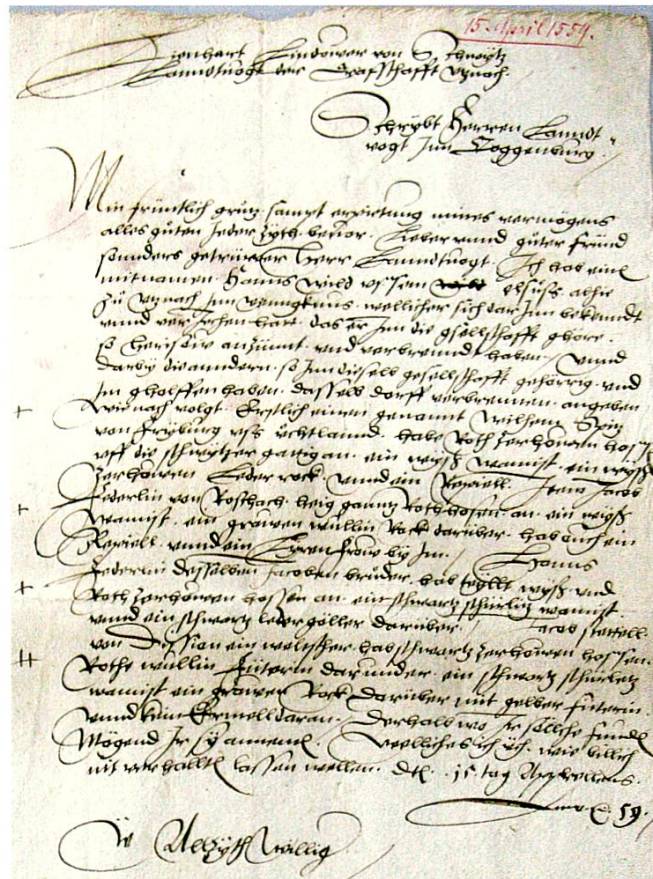 15. April 1559.
Lienhart Lindower von Schwytz
Lanndtvogt der Graffschafft Utznach.
Schrybt Herren Lanndt-
vogt Jnn Toggenburg.
Min früntlich grutz sampt erpietung mines vermögens
alles guten Jeder Zyth bevor. Lieber unnd guter fründ
sonnders getrüwer Herr Lanndtvogt. Jch hab ein
mitnamen Hanns wild alhie
zu Utznach Jnn vennglknus. wellicher sich dar Jnn bekenndt
unnd verJechen hatt. das er Jnn die gsellschafft ghöre.
so Herisow anzünnt. und verbrennt haben. Unnd
darby die anndern. so Jnn die selb gesellschafft gehörig. und
Jm gholffen haben. dasselb dorff verbrennen. angeben
wie nach volgt. Erstlich einen genannt Wilhem
von Fryburg uss üchtlannd. habe Roth zerhouwen hossen
uff die schwytzer gattig an. ein wyss wamist. ein wyss
zerhouwen Leder rock. unnd ein Rapiell. Item Jacob
Federlin von Roschach. heig gannz Roth hosen an. ein wyss
wamist. ein grawen wullin Rock darüber. hab ouch ein
Rapiell. unnd ein Eerren frow by Jm. Hanns
Federlin desselben Jacoben bruder. hab teyllt wyss und
Roth zerhouwen hossen an. ein schwartz schürlitz wamist
unnd ein schwartz leder göller darüber. Jacob
von ein weltscher. hab schwartz zerhouwen hossen.
Rothe wullin Fuetterin darunder. ein schwartz schürletz
wamist ein grawen Rock darüber mit gelber fuetterin.
unnd kein Ermell daran. Derhalb wo Jr söliche funden
Mögend Jr sy annemen. Welliches ich üch. wie billich
nit verhallten lassen wellen. dat. 15 tag Appryllens.
Anno 59.
üwer Allzyth williger